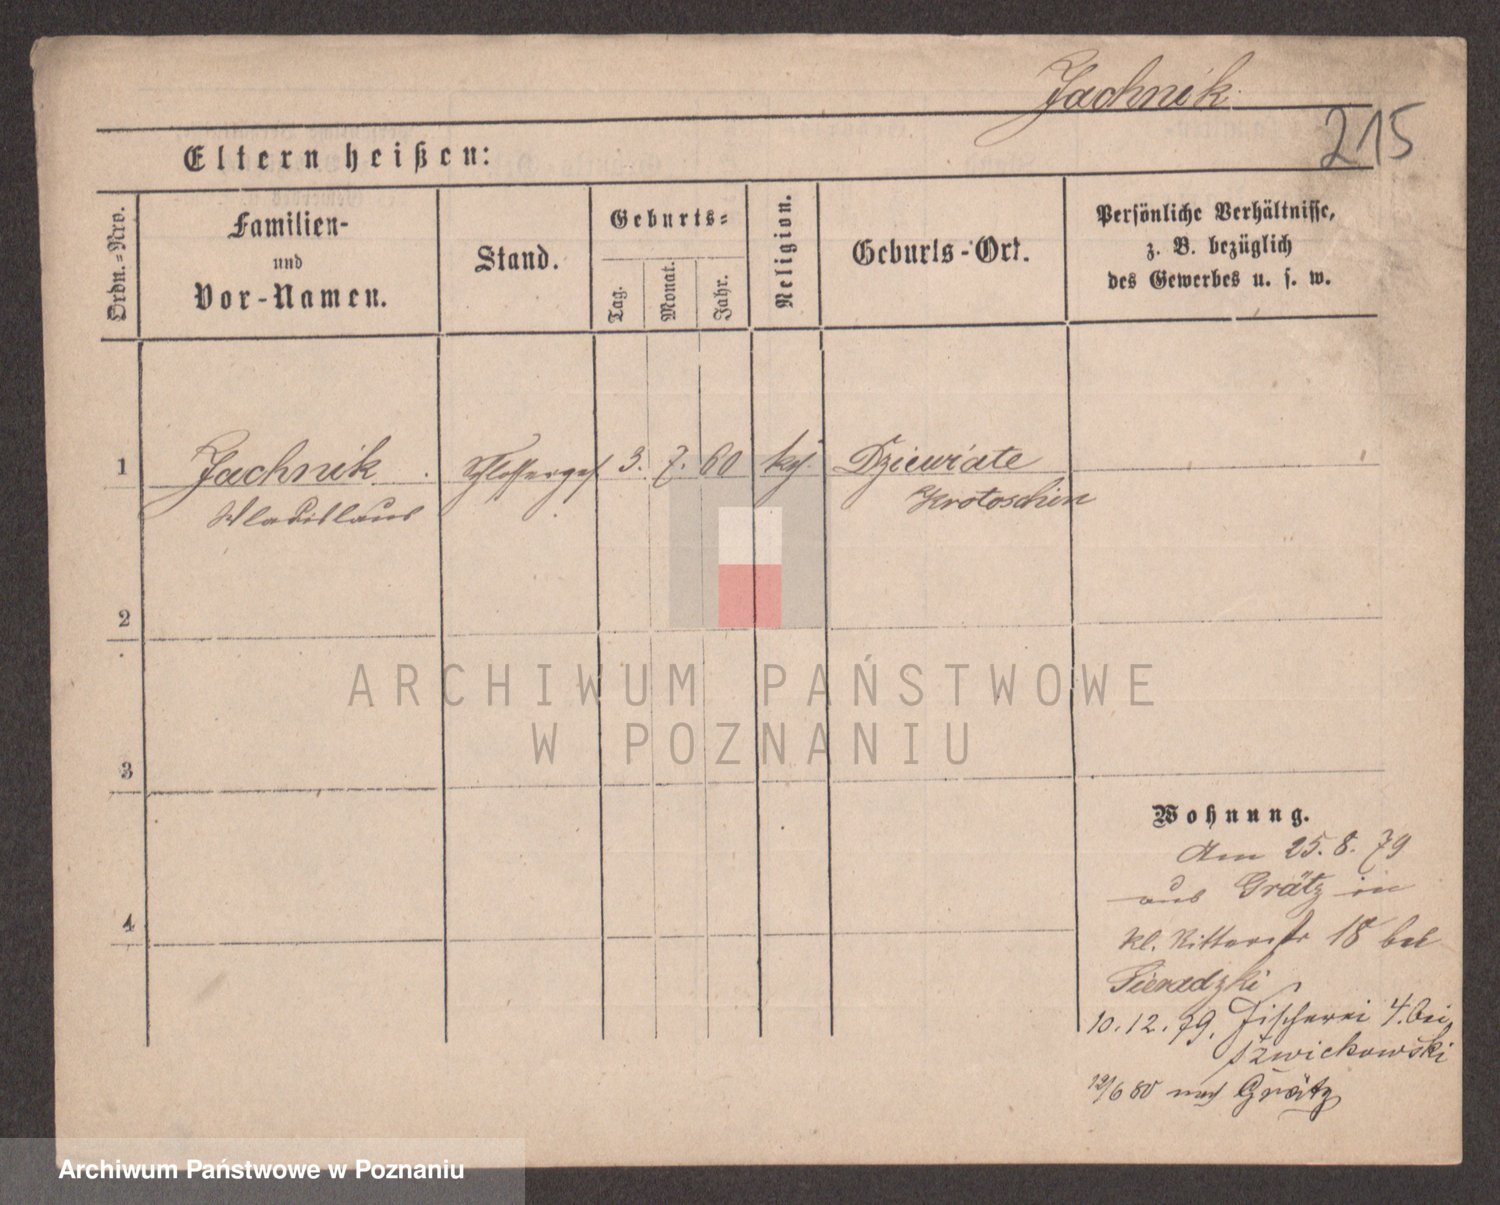 Jachnik.
215
Eltern heißen:
Ordn.-Nro.
Familien-
und
Vor-Namen.
Stand.
Geburts-
Tag.
Monat.
Jahr.
Religion.
Geburts-Ort.
Persönliche Verhältnisse,
z. B. bezüglich
des Gewerbes u. s. w.
1
Jachnik
Wladislaus
Schlosserges.
3. 7. 60
kath.
Dziewiate
Krotoschin
2
3
4
Wohnung.
Am 25. 8. 79
aus Grätz in
kl. Ritterstr 18 bei
Sieradzki
10. 12. 79. Fischerei 4. bei
Szwickowski
12/6 80 nach Grätz
ARCHIWUM PAŃSTWOWE
W POZNANIU
Archiwum Państwowe w Poznaniu